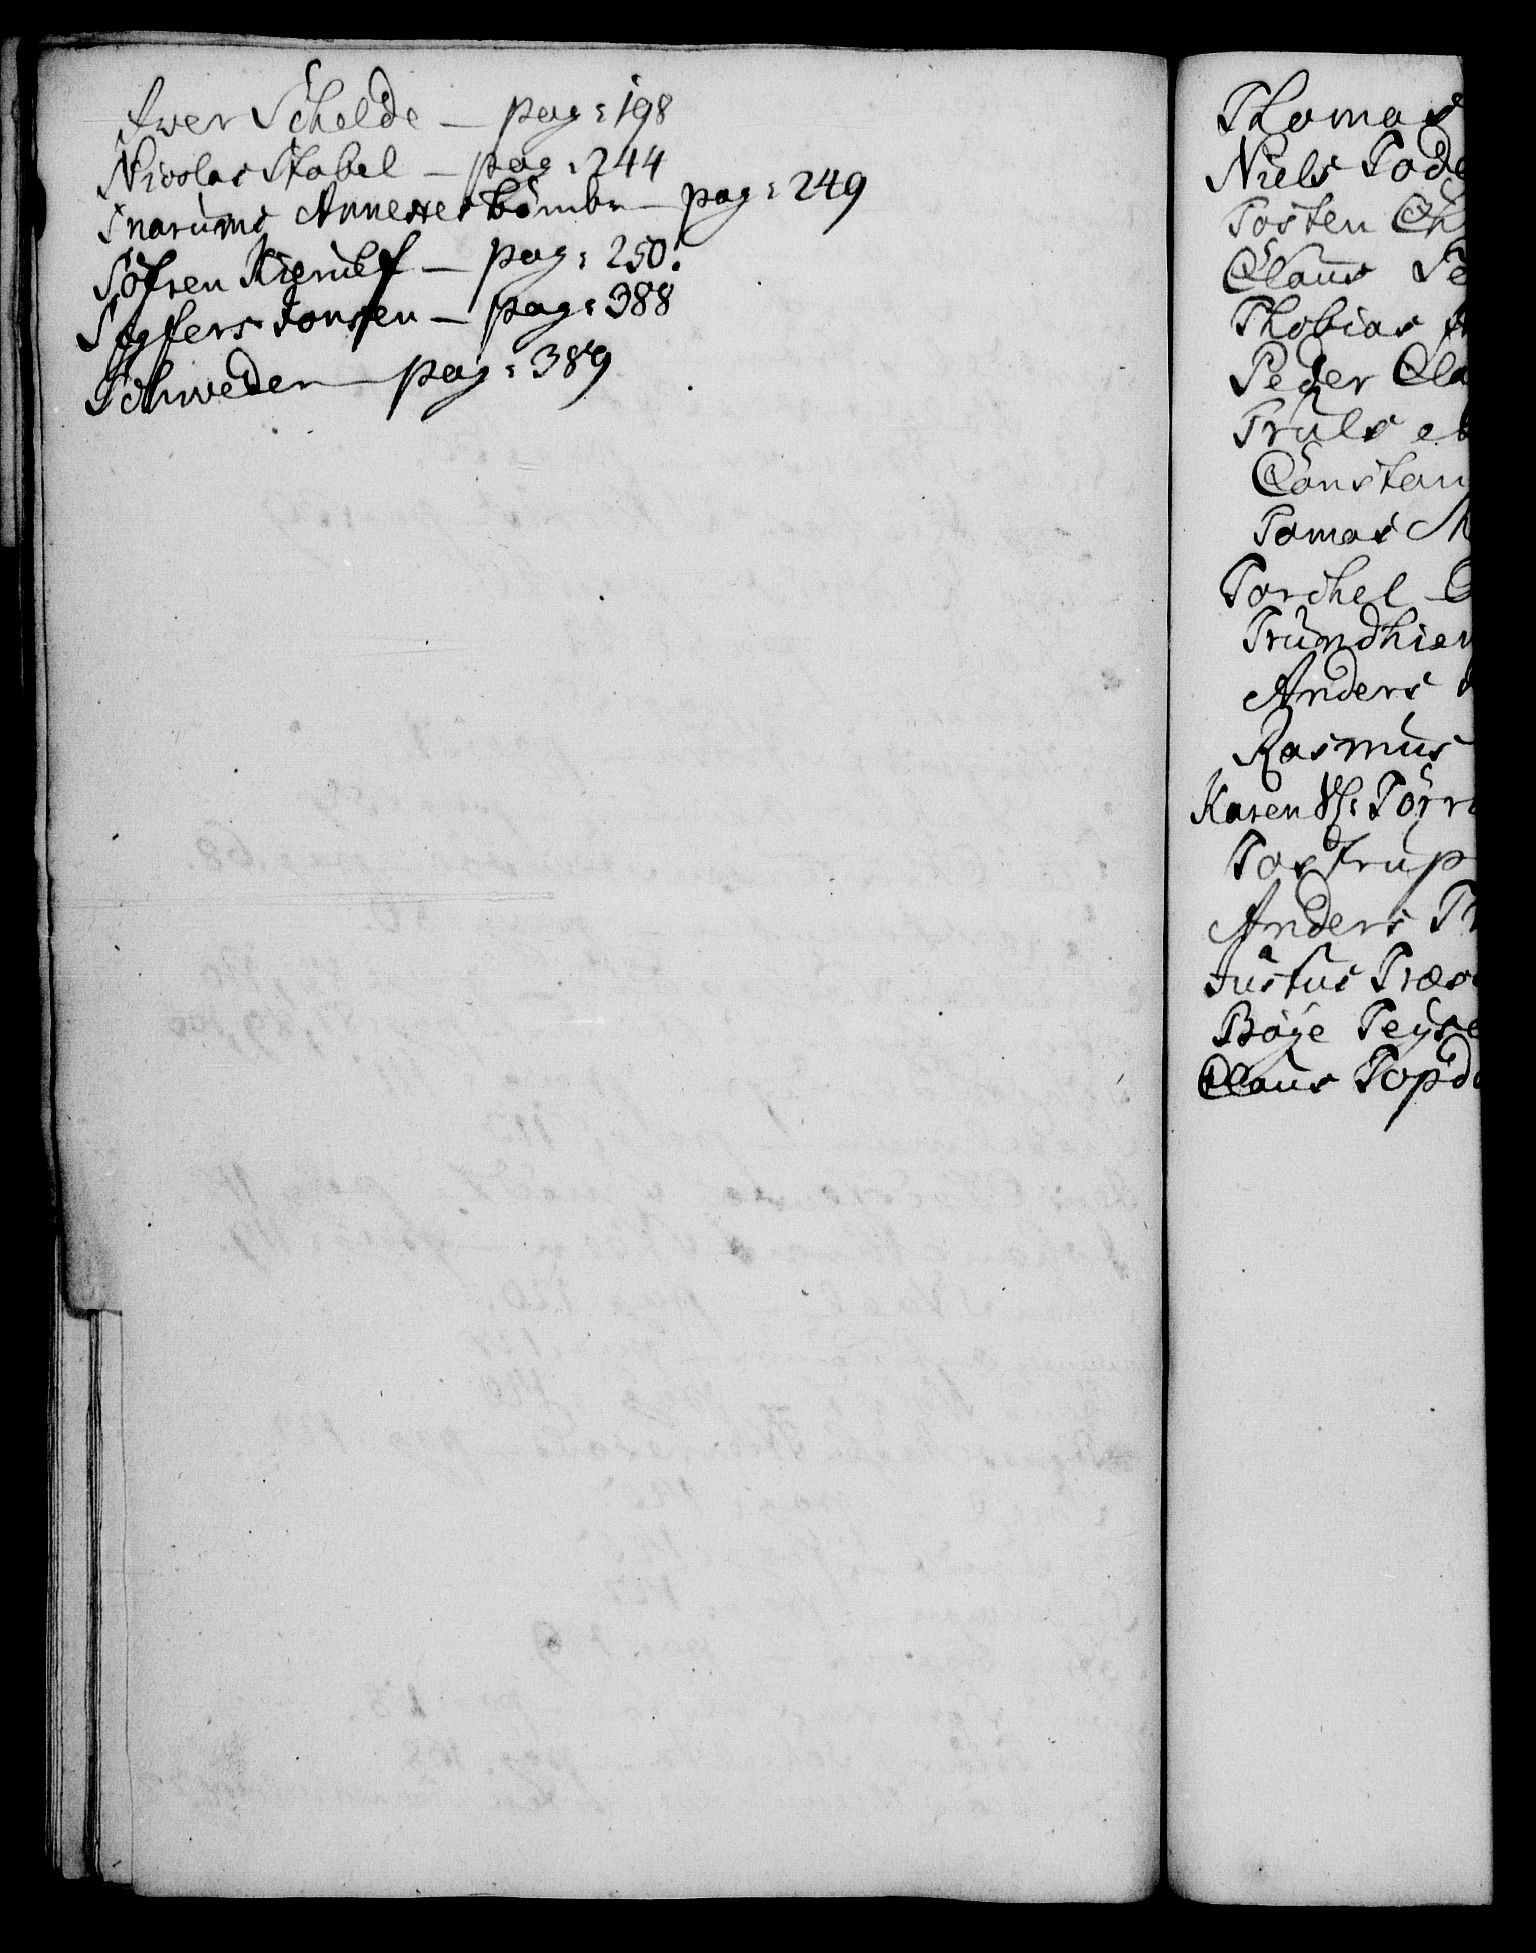 Iver Schelde — pag: 198
Nicolas Stabel — pag: 244
Snarums Annexes bömbr — pag: 249
Söfren Kierulf — pag: 250.
Sygfers Jonsen — pag: 388
Schweder — pag: 389
Thomas
Niels Tode
Tosten Ch
Claus Te
Thobias
Peder Cla
Truls
Constan
Tomas M
Torchel
Trundhiem
Anders
Rasmus
Karen Törr
Tostrup
Anders Tr
Justus Træs
Böye Teyse
Claus Topd